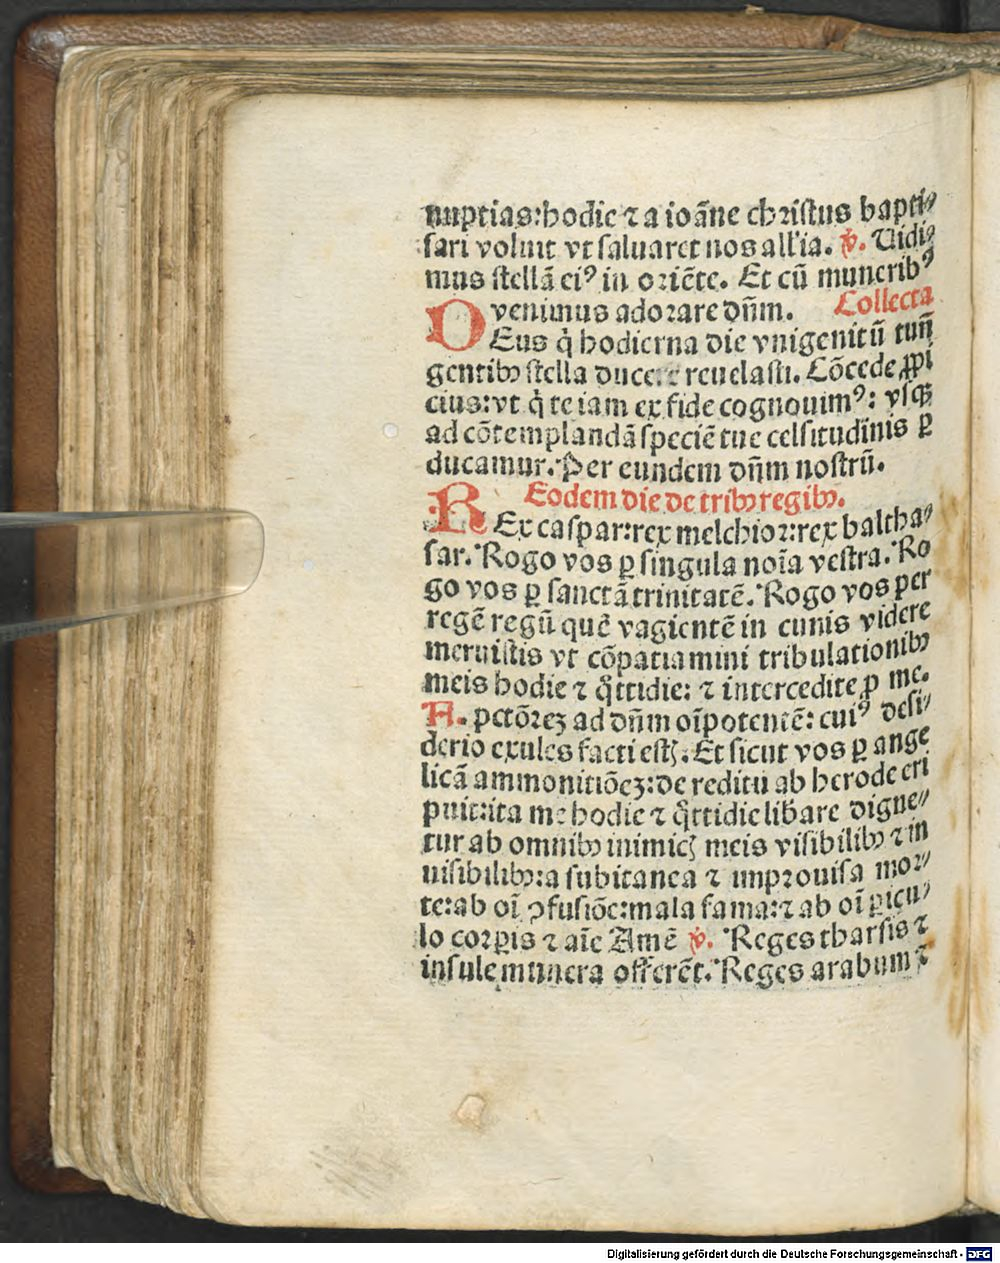 nuptias:hodie ⁊ a ioãne christus bapti⸗
sari voluit vt saluaret nos all'ia. ℣. Uidi⸗
mus stellã eiꝰ in oriẽte. Et cũ muneribꝰ
venimus adorare dñm. Collecta
DEus q̇ hodierna die vnigenitũ tuũ
gentibꝰ stella duce reuelasti. Cõcede ꝓpi
cius:vt q̇ te iam ex fide cognouimꝰ: vsqꝫ
ad cõtemplandã speciẽ tue celsitudinis ꝑ
ducamur. Per eundem dñm nostrũ.
Eodem die de tribꝰ regibꝰ.
REx caspar:rex melchior:rex baltha⸗
sar. Rogo vos ꝑ singula noĩa vestra. Ro
go vos ꝑ sanctã trinitatẽ. Rogo vos per
regẽ regũ quẽ vagientẽ in cunis videre
meruistis vt cõpatiamini tribulationibꝰ
meis hodie ⁊ q̊ttidie: ⁊ intercedite ꝓ me.
A. pctõreꝫ ad dñm oĩpotentẽ: cuiꝰ desi⸗
derio exules facti estꝭ. Et sicut vos ꝑ ange
licã ammonitiõeꝫ:de reditu ab herode eri
puit:ita me hodie ⁊ q̊ttidie liƀare digne⸗
tur ab omnibꝰ inimicꝭ meis visibilibꝰ ⁊ in
uisibilibꝰ:a subitanea ⁊ improuisa mor⸗
te:ab oĩ ꝯfusiõe:mala fama:⁊ ab oĩ ꝑicu⸗
lo corꝑis ⁊ aĩe Amẽ ℣. Reges tharsis ⁊
insule munera offerẽt. Reges arabum ⁊
Digitalisierung gefördert durch die Deutsche Forschungsgemeinschaft - DFG